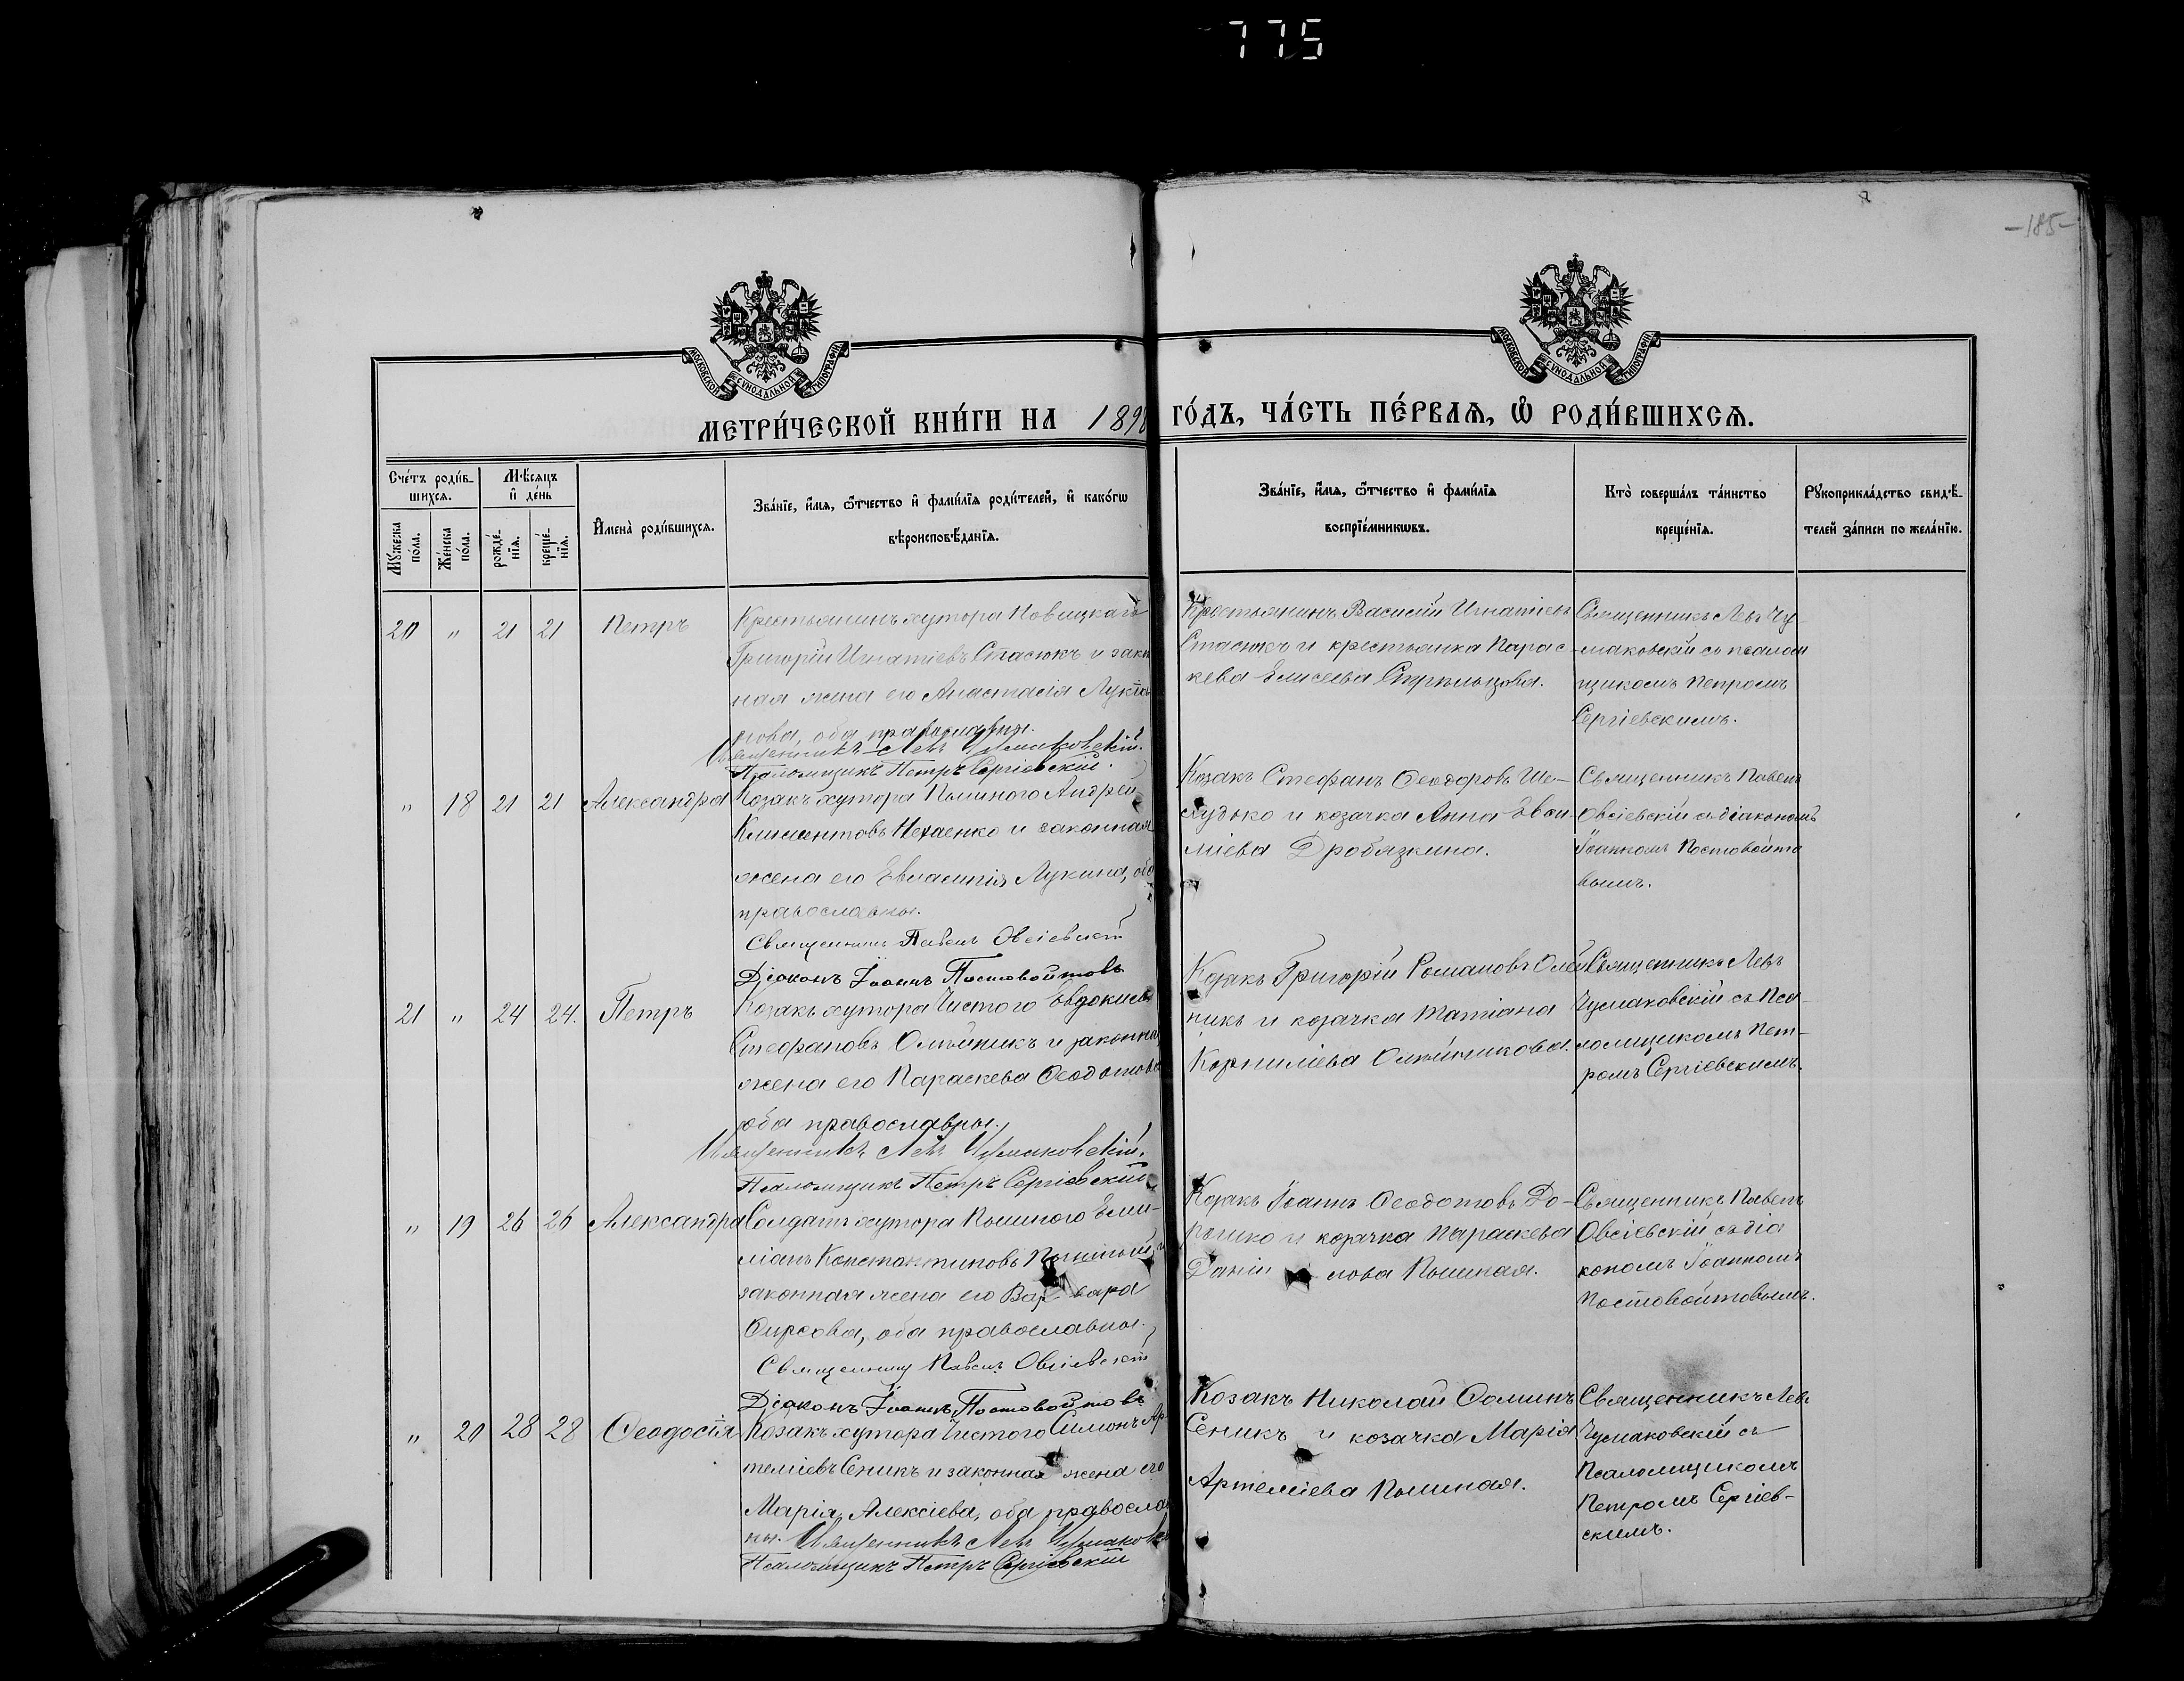 775
-185-
МОСКОВСКОЙ СѴНОДАЛЬНОЙ ТИПОГРАФІИ
МОСКОВСКОЙ СѴНОДАЛЬНОЙ ТИПОГРАФІИ
МЕТРИ́ЧЕСКОЙ КНИ́ГИ НА 1898 ГО́ДЪ, ЧА́СТЬ ПЕ́РВАѦ, Ѡ҆ РОДИ́ВШИХСѦ.
Сче́тъ роди́в-
шихсѧ.
Мꙋ́жеска по́ла.
Же́нска по́ла.
Мѣ́сѧцъ
и҆ де́нь
рожде́-
нїѧ.
креще́-
нїѧ.
И҆мена̀ роди́вшихсѧ.
Зва́нїе, и҆́мѧ, ѻ҆́тчество и҆ фами́лїѧ роди́телей, и҆ како́гѡ
вѣроисповѣ́данїѧ.
Зва́нїе, и҆́мѧ, ѻ҆́тчество и҆ фами́лїѧ
воспрїе́мникѡвъ.
Кто̀ соверша́лъ та́инство
креще́нїѧ.
Рꙋкоприкла́дство свидѣ́-
телей за́писи по жела́нїю.
20 " 21 21 Петръ
Крестьянинъ хутора Новицкаго
Григорій Игнатіевъ Стасюкъ и закон
ная жена его Анастасія Лукія
нова, оба православны.
Священникъ Левъ Чумаковскій.
Псаломщикъ Петръ Сергіевскій.
Крестьянинъ Василій Игнатіевъ
Стасюкъ и крестьянка Парас-
кева Елисеева Стрѣльцова.
Священникъ Левъ Чу-
маковскій съ псалом
щикомъ Петромъ
Сергіевскимъ.
" 18 21 21 Александра
Козакъ хутора Пышного Андрей
Климентовъ Нехаенко и законная
жена его Евлампія Лукина, оба
православны.
Священникъ Павелъ Овсіевскій
Діаконъ Іоаннъ Постовойтовъ
Козакъ Стефанъ Ѳеодоровъ Ше-
лудько и козачка Анна
Дробязкина.
Священникъ Павелъ
Овсіевскій съ діакономъ
Іоанномъ Постовойто
вымъ.
21 " 24 24. Петръ
Козакъ хутора Чистого Евдокимъ
Стефановъ Олѣйникъ и законная
жена его Параскева Ѳеодотова
оба православны.
Священникъ Левъ Чумаковскій.
Псаломщикъ Петръ Сергіевскій
Козакъ Григорій Романовъ Олѣй
никъ и козачка Татіана
Корниліева Олѣйникова.
Священникъ Левъ
Чумаковскій съ Пса-
ломщикомъ Пет-
ромъ Сергіевскимъ.
" 19 26 26 Александра
Солдатъ хутора Пышного Еми-
ліанъ Константиновъ Пышный и
законная жена его Варвара
Ѳирсова, оба православны.
Священникъ Павелъ Овсіевскій
Діаконъ Іоаннъ Постовойтовъ
Козакъ Іоаннъ Ѳеодотовъ До-
рошко и козачка Параскева
Даніилова Пышная.
Священникъ Павелъ
Овсіевскій съ діа
кономъ Іоанномъ
Постовойтовымъ.
" 20 28 28 Ѳеодосія
Козакъ хутора Чистого Симонъ Ар-
теміевъ Сеникъ и законная жена его
Марія Алексіева, оба православ
ны. Священникъ Левъ Чумаковскій
Псаломщикъ Петръ Сергіевскій
Козакъ Николай Ѳоминъ
Сеникъ и козачка Марія
Артеміева Пышная.
Священникъ Левъ
Чумаковскій съ
Псаломщикомъ
Петромъ Сергіев-
скимъ.